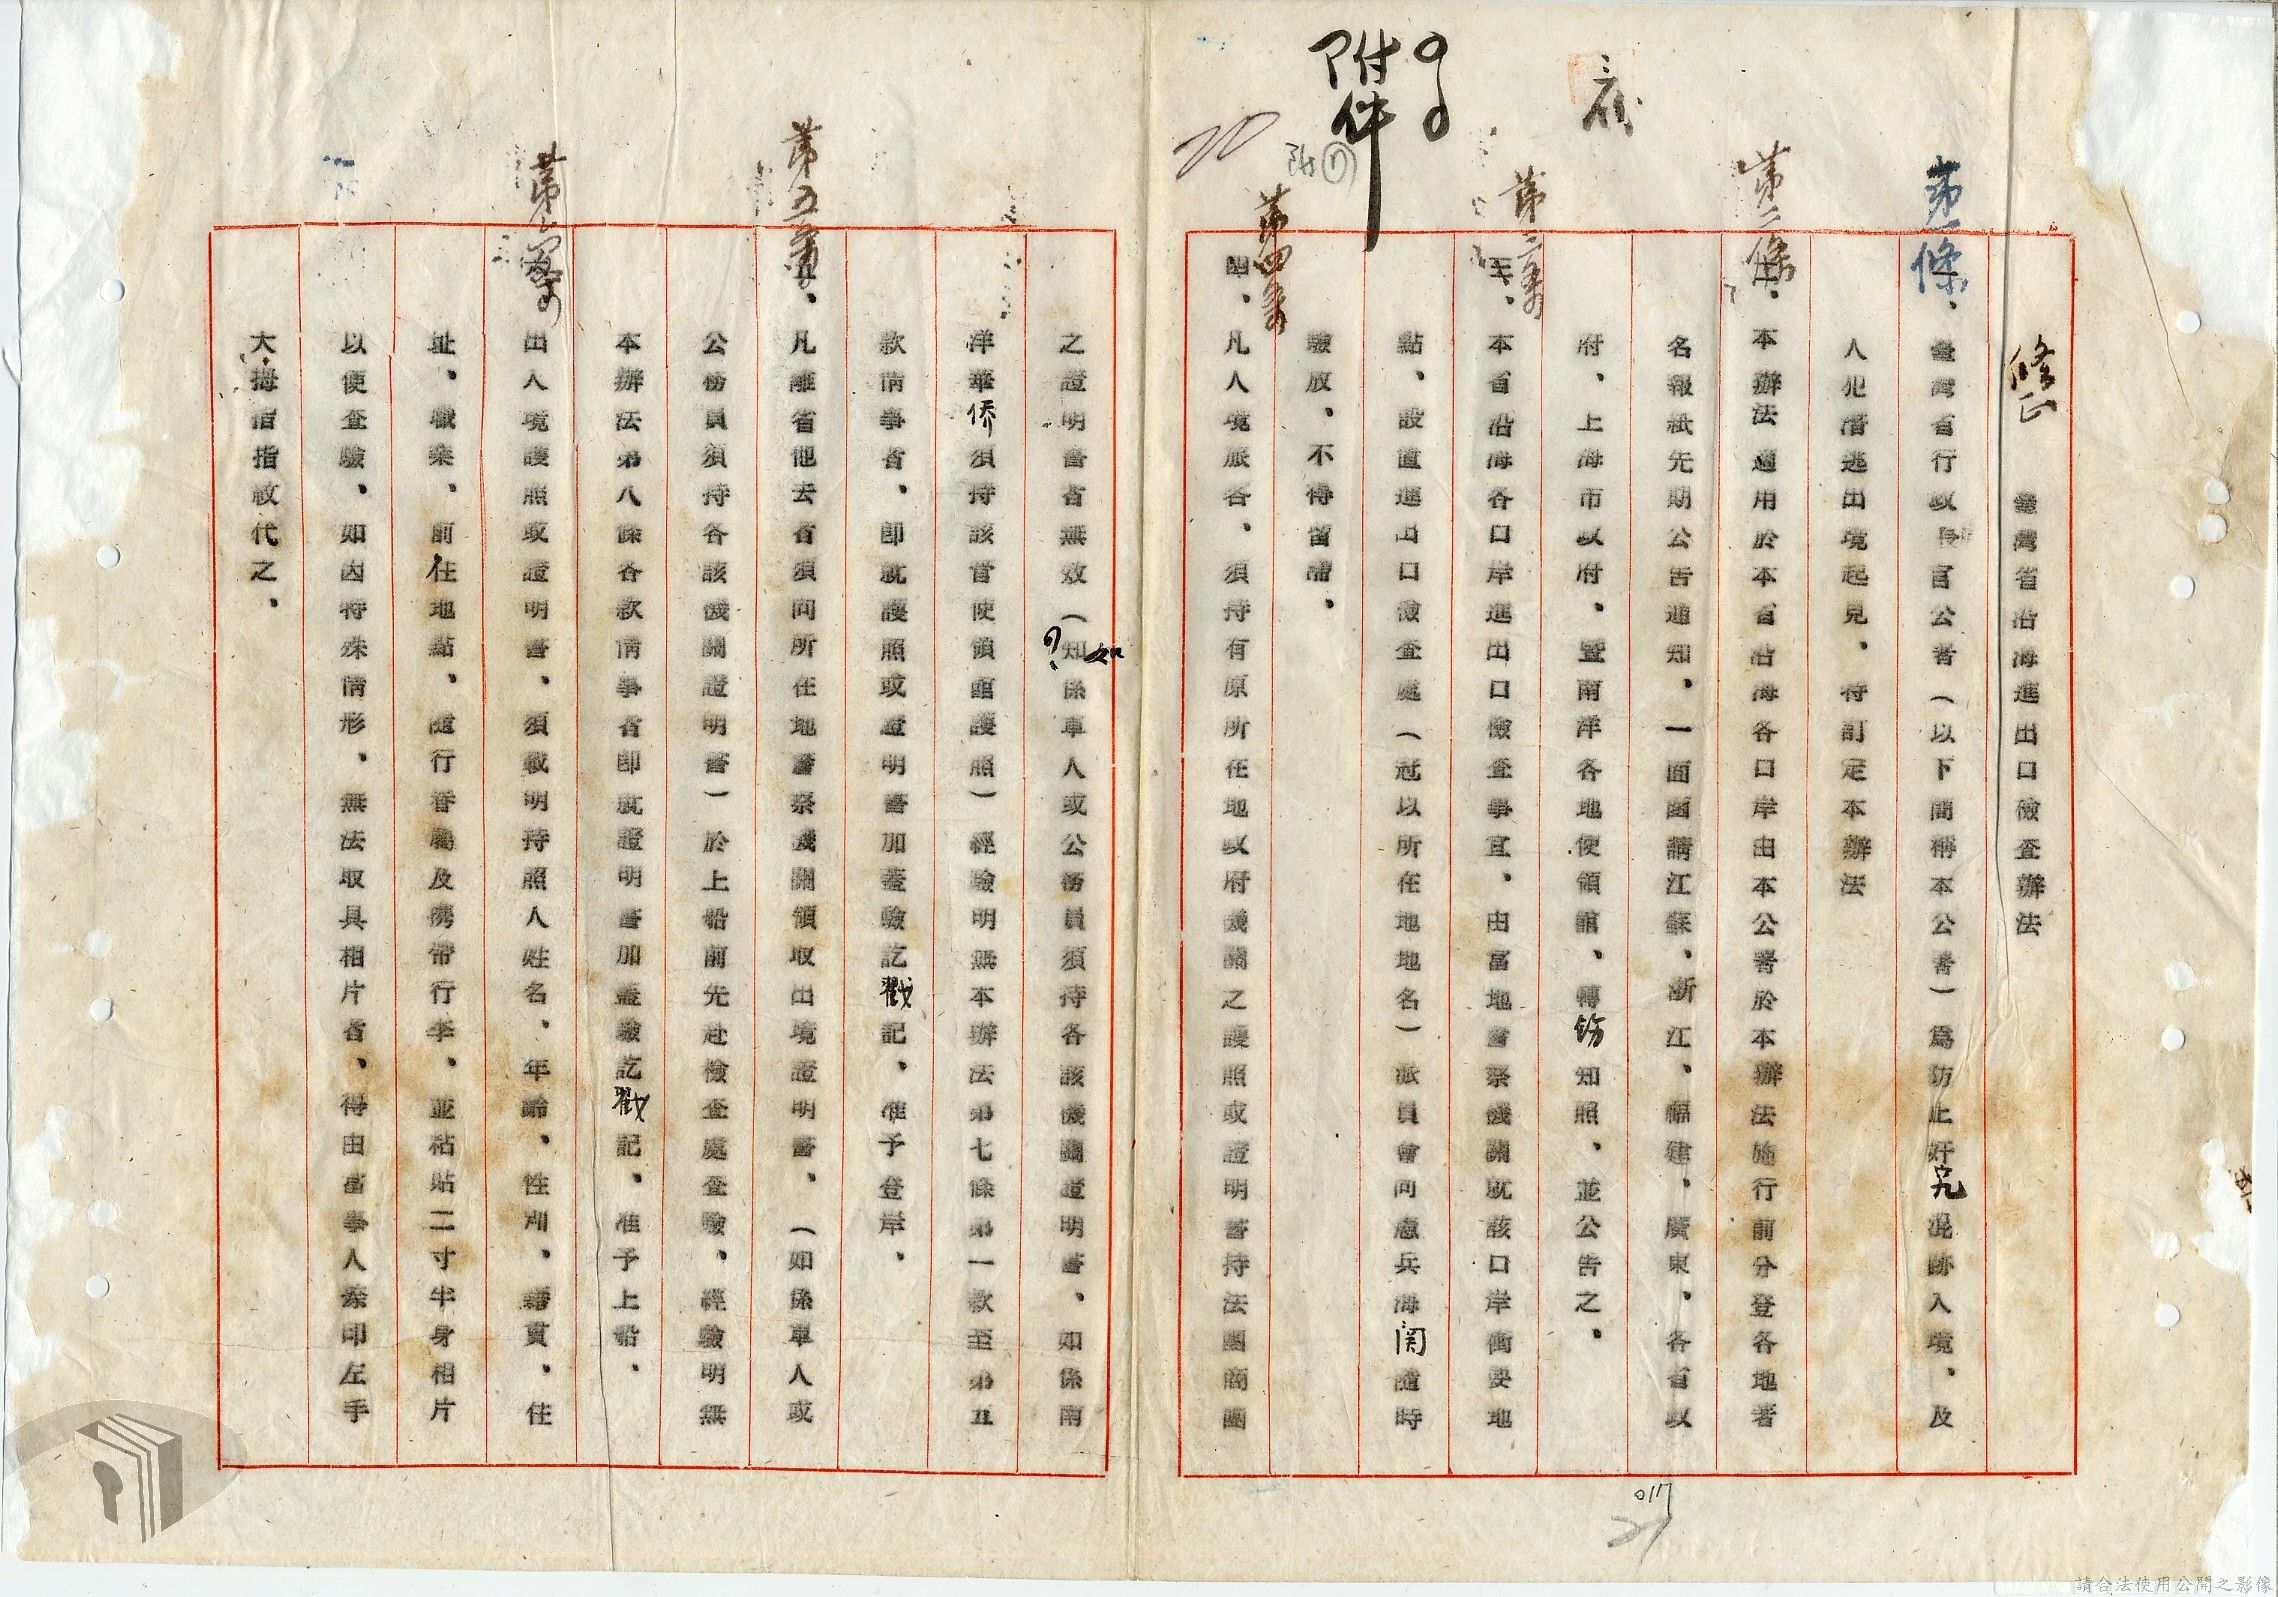 附件
修正　臺灣省沿海進出口檢查辦法
第一條
一、臺灣省行政長官公署（以下簡稱本公署）為防止奸宄混跡入境、及
人犯潛逃出境起見、特訂定本辦法
第二條
二、本辦法適用於本省沿海各口岸由本公署於本辦法施行前分登各地著
名報紙先期公告通知、一面函請江蘇、浙江、福建、廣東、各省政
府、上海市政府、暨南洋各地使領館、轉飭知照、並公告之、
第三條
三、本省沿海各口岸進出口檢查事宜、由當地警察機關就該口岸衝要地
點、設置進出口檢查處（冠以所在地地名）派員會同憲兵海関隨時
驗放、不得留滯、
第四條
四、凡入境旅客、須持有原所在地政府機關之護照或證明書持法團商團
之證明書者無效（知係軍人或公務員須持各該機關證明書、如係南
如
洋華侨須持該管使領館護照）經驗明無本辦法第七條第一款至第五
款情事者、即就護照或證明書加蓋驗訖戳記、准予登岸、
第五條
五、凡離省他去者須向所在地警察機關領取出境證明書、（如係軍人或
公務員須持各該機關證明書）於上船前先赴檢查處查驗、經驗明無
本辦法第八條各款情事者即就證明書加蓋驗訖戳記、准予上船、
出入境護照或證明書、須載明持照人姓名、年齡、性別、籍貫、住
址、職業、前住地點、隨行眷屬及携帶行李、並粘貼二寸半身相片
以便查驗、如因特殊情形、無法取具相片者、得由當事人捺印左手
大拇指指紋代之、
0117
請合法使用公開之影像